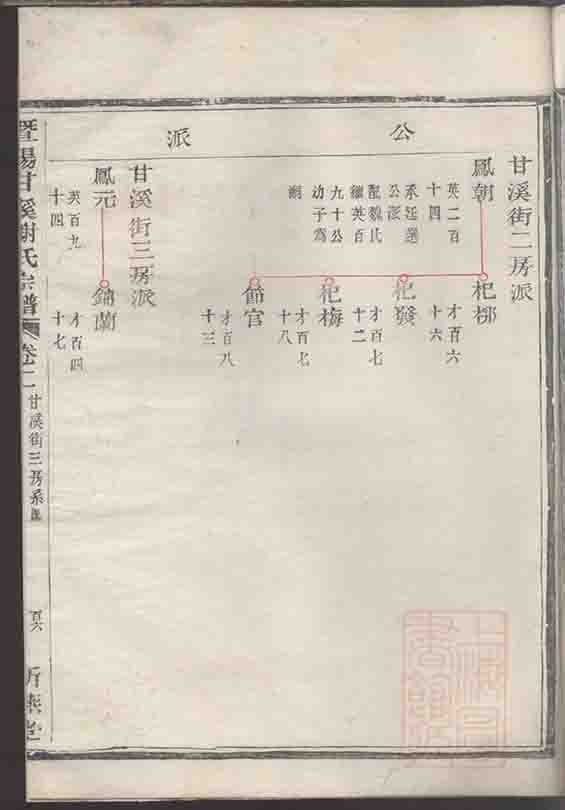 公派
甘溪街二房派
鳳朝
英二百
十四
承廷選
公派
配魏氏
繼英百
九十公
幼子爲
嗣
杞
才百六
十六
杞發
才百七
十二
杞梅
才百七
十八
節官
才百八
十三
甘溪街三房派
鳳元
英百九
十四
錦蘭
才百四
十七
暨陽甘溪謝氏宗譜
卷二
甘溪街三房系
百六